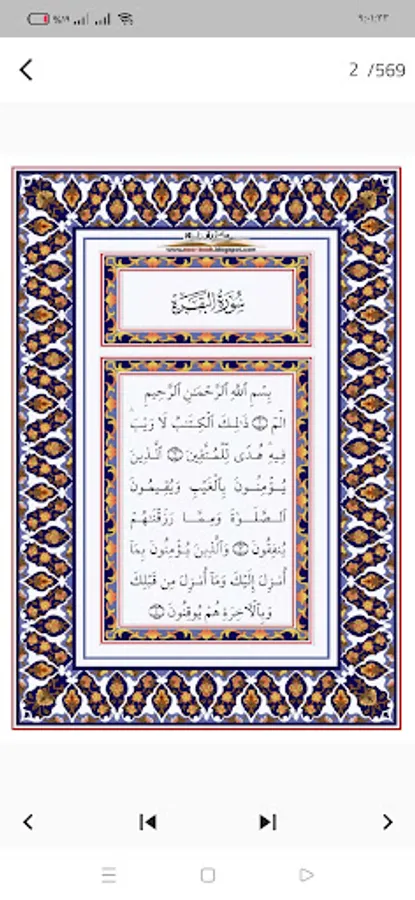 %١٩
٩:٠١:٢٣
2 /569
www.noor-book.blogspot.com
سُورَةُ البَقَرَةِ
بِسْمِ ٱللَّهِ ٱلرَّحْمَٰنِ ٱلرَّحِيمِ
الٓمٓ ۝١ ذَٰلِكَ ٱلْكِتَٰبُ لَا رَيْبَ ۛ
فِيهِ ۛ هُدًى لِّلْمُتَّقِينَ ۝٢ ٱلَّذِينَ
يُؤْمِنُونَ بِٱلْغَيْبِ وَيُقِيمُونَ
ٱلصَّلَوٰةَ وَمِمَّا رَزَقْنَٰهُمْ
يُنفِقُونَ ۝٣ وَٱلَّذِينَ يُؤْمِنُونَ بِمَآ
أُنزِلَ إِلَيْكَ وَمَآ أُنزِلَ مِن قَبْلِكَ
وَبِٱلْءَاخِرَةِ هُمْ يُوقِنُونَ ۝٤